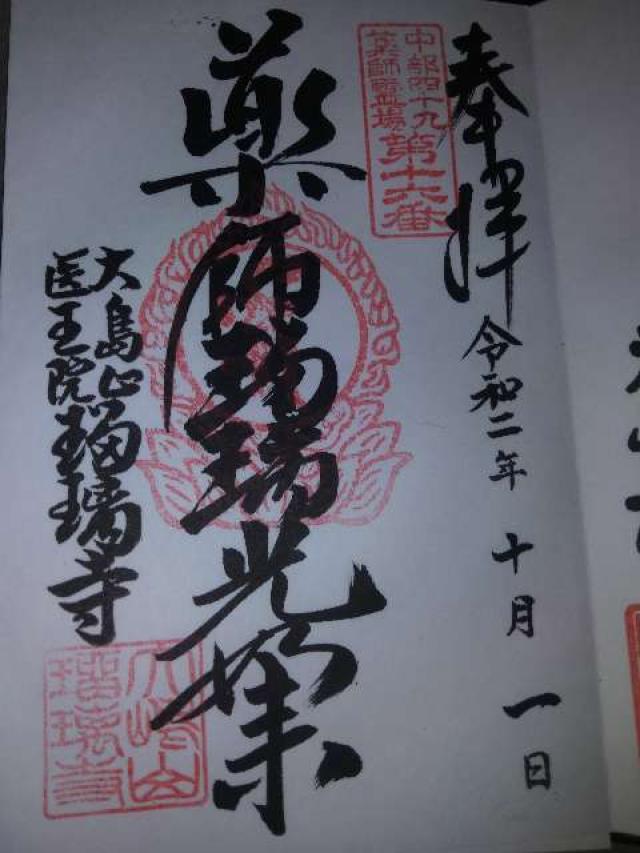 奉拝
令和二年十月一日
中部四十九
薬師霊場
第十六番
薬師瑠璃光如来
大島山
医王院
瑠璃寺
大嶋山
瑠璃寺